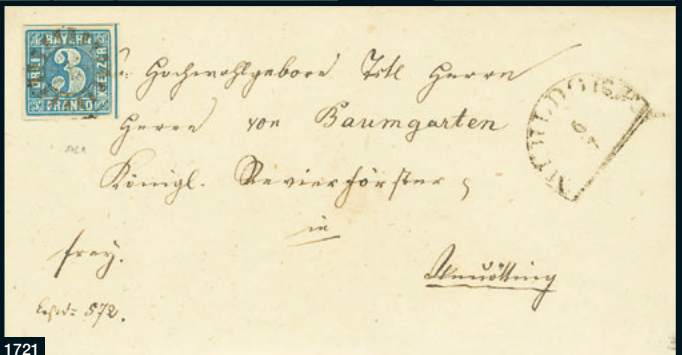 BAYERN
DREI
KREUZER
FRANCO
3
Hochwohlgeboren Titl Herrn
Herrn von Baumgarten
Königl. Revierförster
in
Neuötting
MÜHLDORF
6
7
frey.
572.
1721